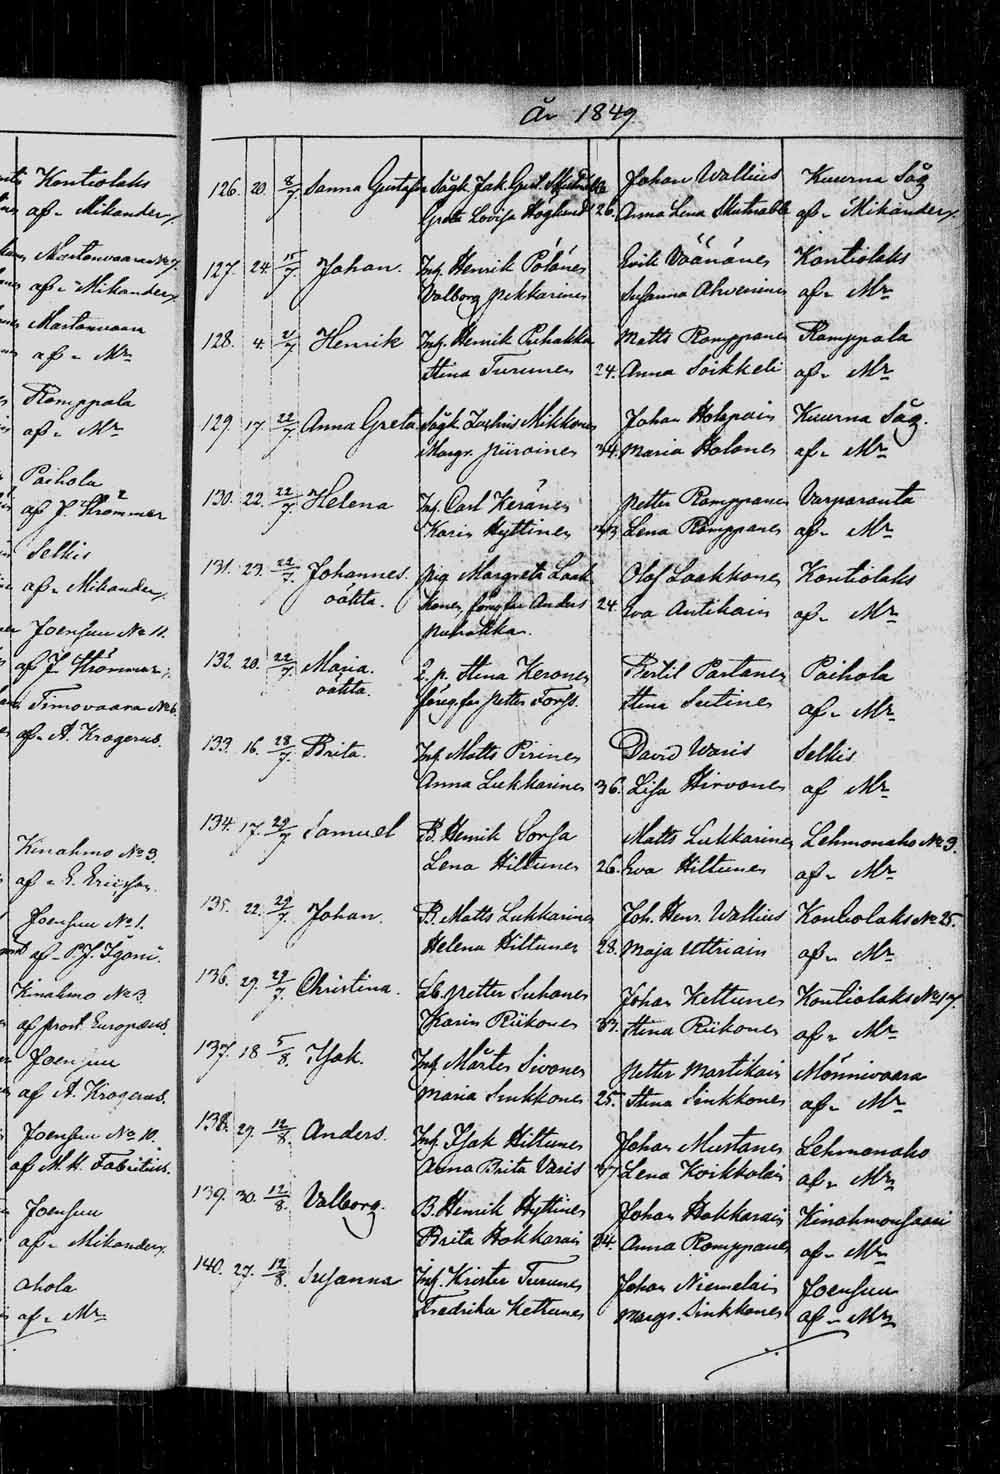 Kontiolaks
af - Mikander
Martonvaara No 7.
af - Mikander
Martonvaara
af - Mr
Romppala
af - Mr
Paihola
af P. Strömmer
Selkis
af - Mikander
Joensuu No 11.
af J. Strömmer
Timovaara No 6.
af A. Krogerus.
Kinahmo No 3.
af - E. Ericsson
Joensuu No 1.
af - P. J.
Kinahmo No 3.
af prost. Europæus
Joensuu
af A. Krogerus.
Joensuu No 10.
af M. H. Fabritius.
Joensuu
af - Mikander
ahola
af - Mr
År 1849
126. 20. 8/7 Sanna Gustafva Sågk. Jak. Gust. Johan Wallius Kuurna Såg
Greta Lovisa Höglund 26. Anna Lena Skutnabb af - Mikander
127. 24. 15/7 Johan. Inh. Henrik Pölönen Erik Väänänen Kontiolaks
Valborg Pekkarinen Susanna Ahveninen af - Mr
128. 4. 21/7 Henrik Inh. Henrik Puhakka Matts Romppanen Romppala
Stina Turunen 24. Anna Soikkeli af - Mr
129. 17. 22/7 Anna Greta Sågk. Zachris Mikkonen Johan Holopain Kuurna Såg.
Margr. Piiroinen 34. Maria Holonen af - Mr
130. 22. 22/7 Helena Inh. Carl Keränen Petter Romppanen Varparanta
Karin Hyttinen 33 Lena Romppanen af - Mr
131. 23. 22/7 Johannes. Pig. Margreta Laak Olof Laakkonen Kontiolaks
oäkta. konen, föregifer Anders 24. Eva Antikain af - Mr
Puhakka.
132. 20. 22/7 Maria. L. p. Stina Keronen Bertil Partanen Paihola
oäkta. föregifer Petter Forss. Stina Sutinen af - Mr
133. 16. 28/7 Brita. Inh. Matts Pirinen David Waris Selkis
Anna Lukkarinen 36. Lisa Hirvonen af Mr
134. 17. 29/7 Samuel B. Henrik Sorsa Matts Lukkarinen Lehmonaho No 3.
Lena Hiltunen 26. Eva Hiltunen af - Mr
135. 22. 29/7 Johan. B. Matts Lukkarinen Joh. Henr. Wallius Kontiolaks No 25.
Helena Hiltunen 28. Maja Uttriain af - Mr
136. 29. 29/7 Christina. Lb. Petter Suhonen Johan Kettunen Kontiolaks No 17
Karin Riikonen 33. Stina Riikonen af - Mr
137. 18 5/8. Isak. Inh. Mårten Sivonen Petter Martikain Mönnivaara
Maria Sinkkonen 25. Stina Sinkkonen af - Mr
138. 29. 12/8. Anders. Inh. Isak Hiltunen Johan Mustonen Lehmonaho
Anna Brita Varis 37 Lena Koikkalain af - Mr
139. 30. 12/8. Valborg. B. Henrik Hyttinen Johan Hokkarain Kinahmonsaari
Brita Hokkarain 34. Anna Romppanen af - Mr
140. 27. 12/8. Susanna Inh. Krister Turunen Johan Niemelain Joensuu
Fredrika Kettunen Margr. Sinkkonen af - Mr